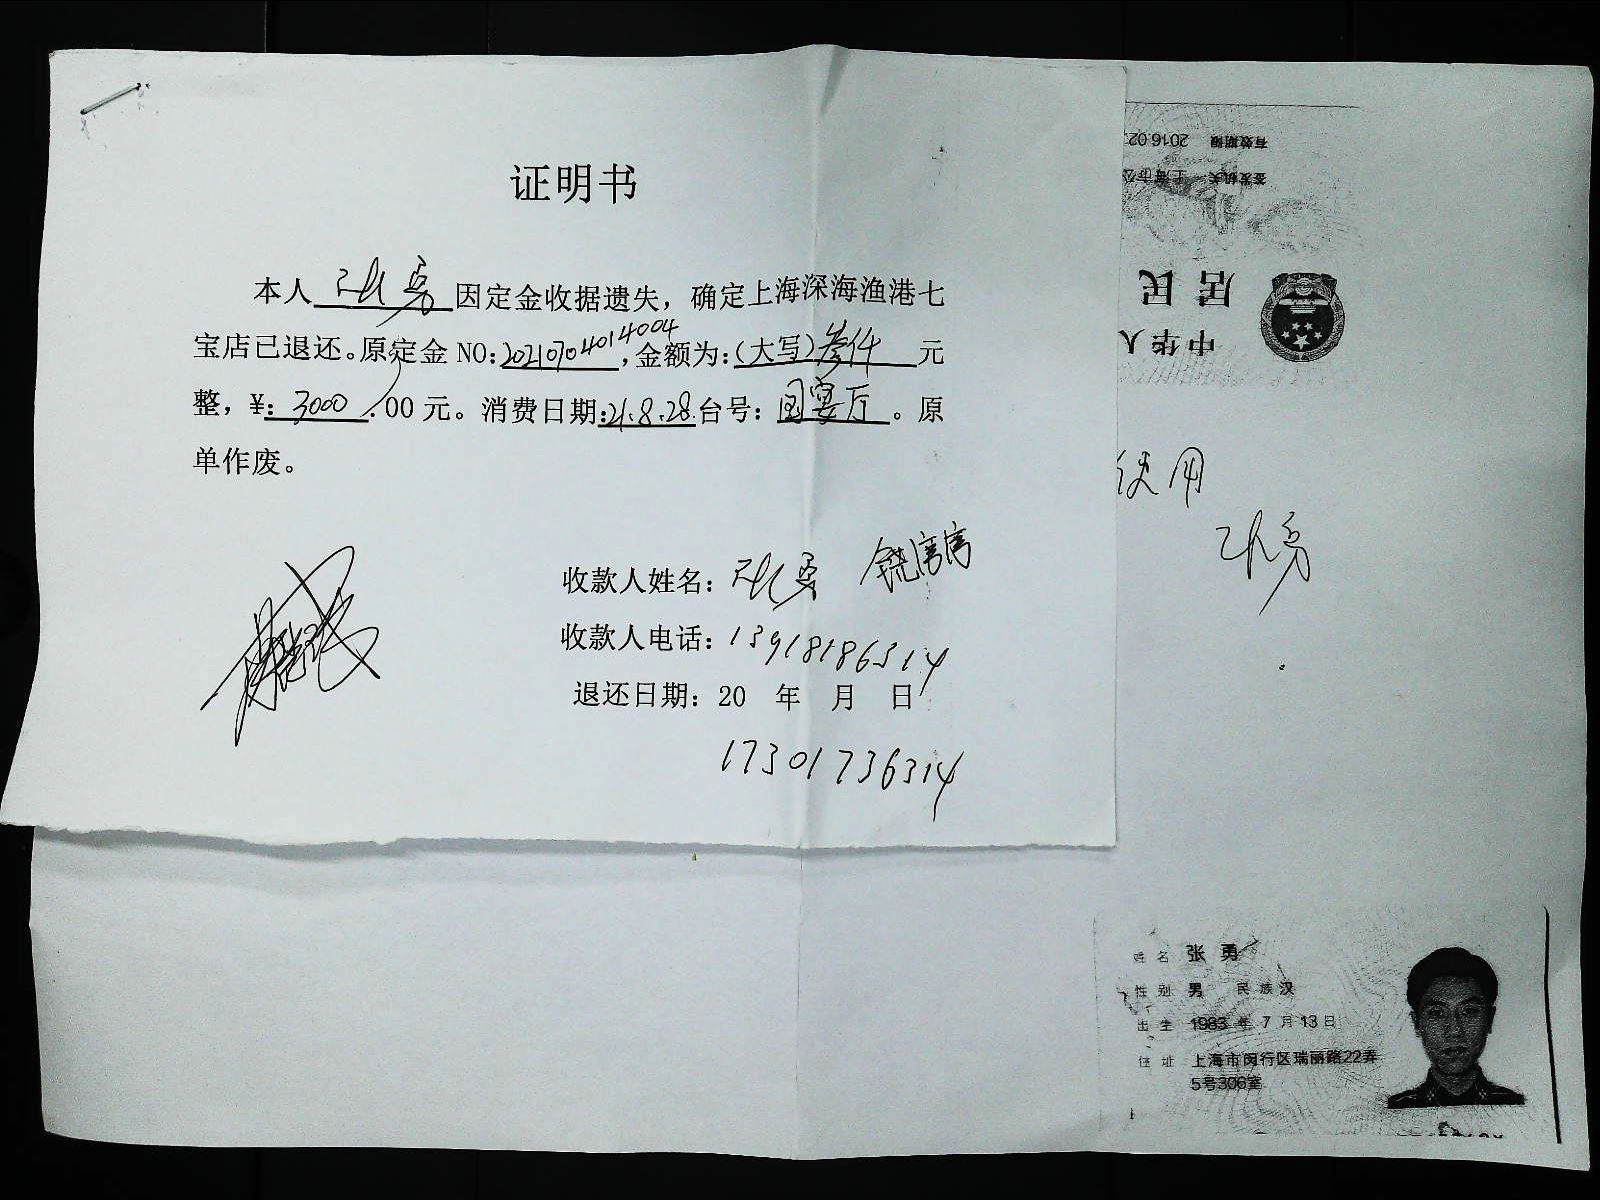 证明书
本人张勇因定金收据遗失，确定上海深海渔港七
宝店已退还。原定金 NO:20210704014004,金额为:(大写)叁仟元
整，¥: 3000.00 元。消费日期:21.8.28.台号：国宴厅。原
单作废。
收款人姓名：张勇
收款人电话：13918186314
退还日期：20 年 月 日
17301736314
有效期限 2016.02
签发机关 上海市公
居民
中华人
使用
张勇
姓名 张勇
性别 男 民族 汉
出生 1983 年 7 月 13 日
住址 上海市闵行区瑞丽路22弄
5号306室